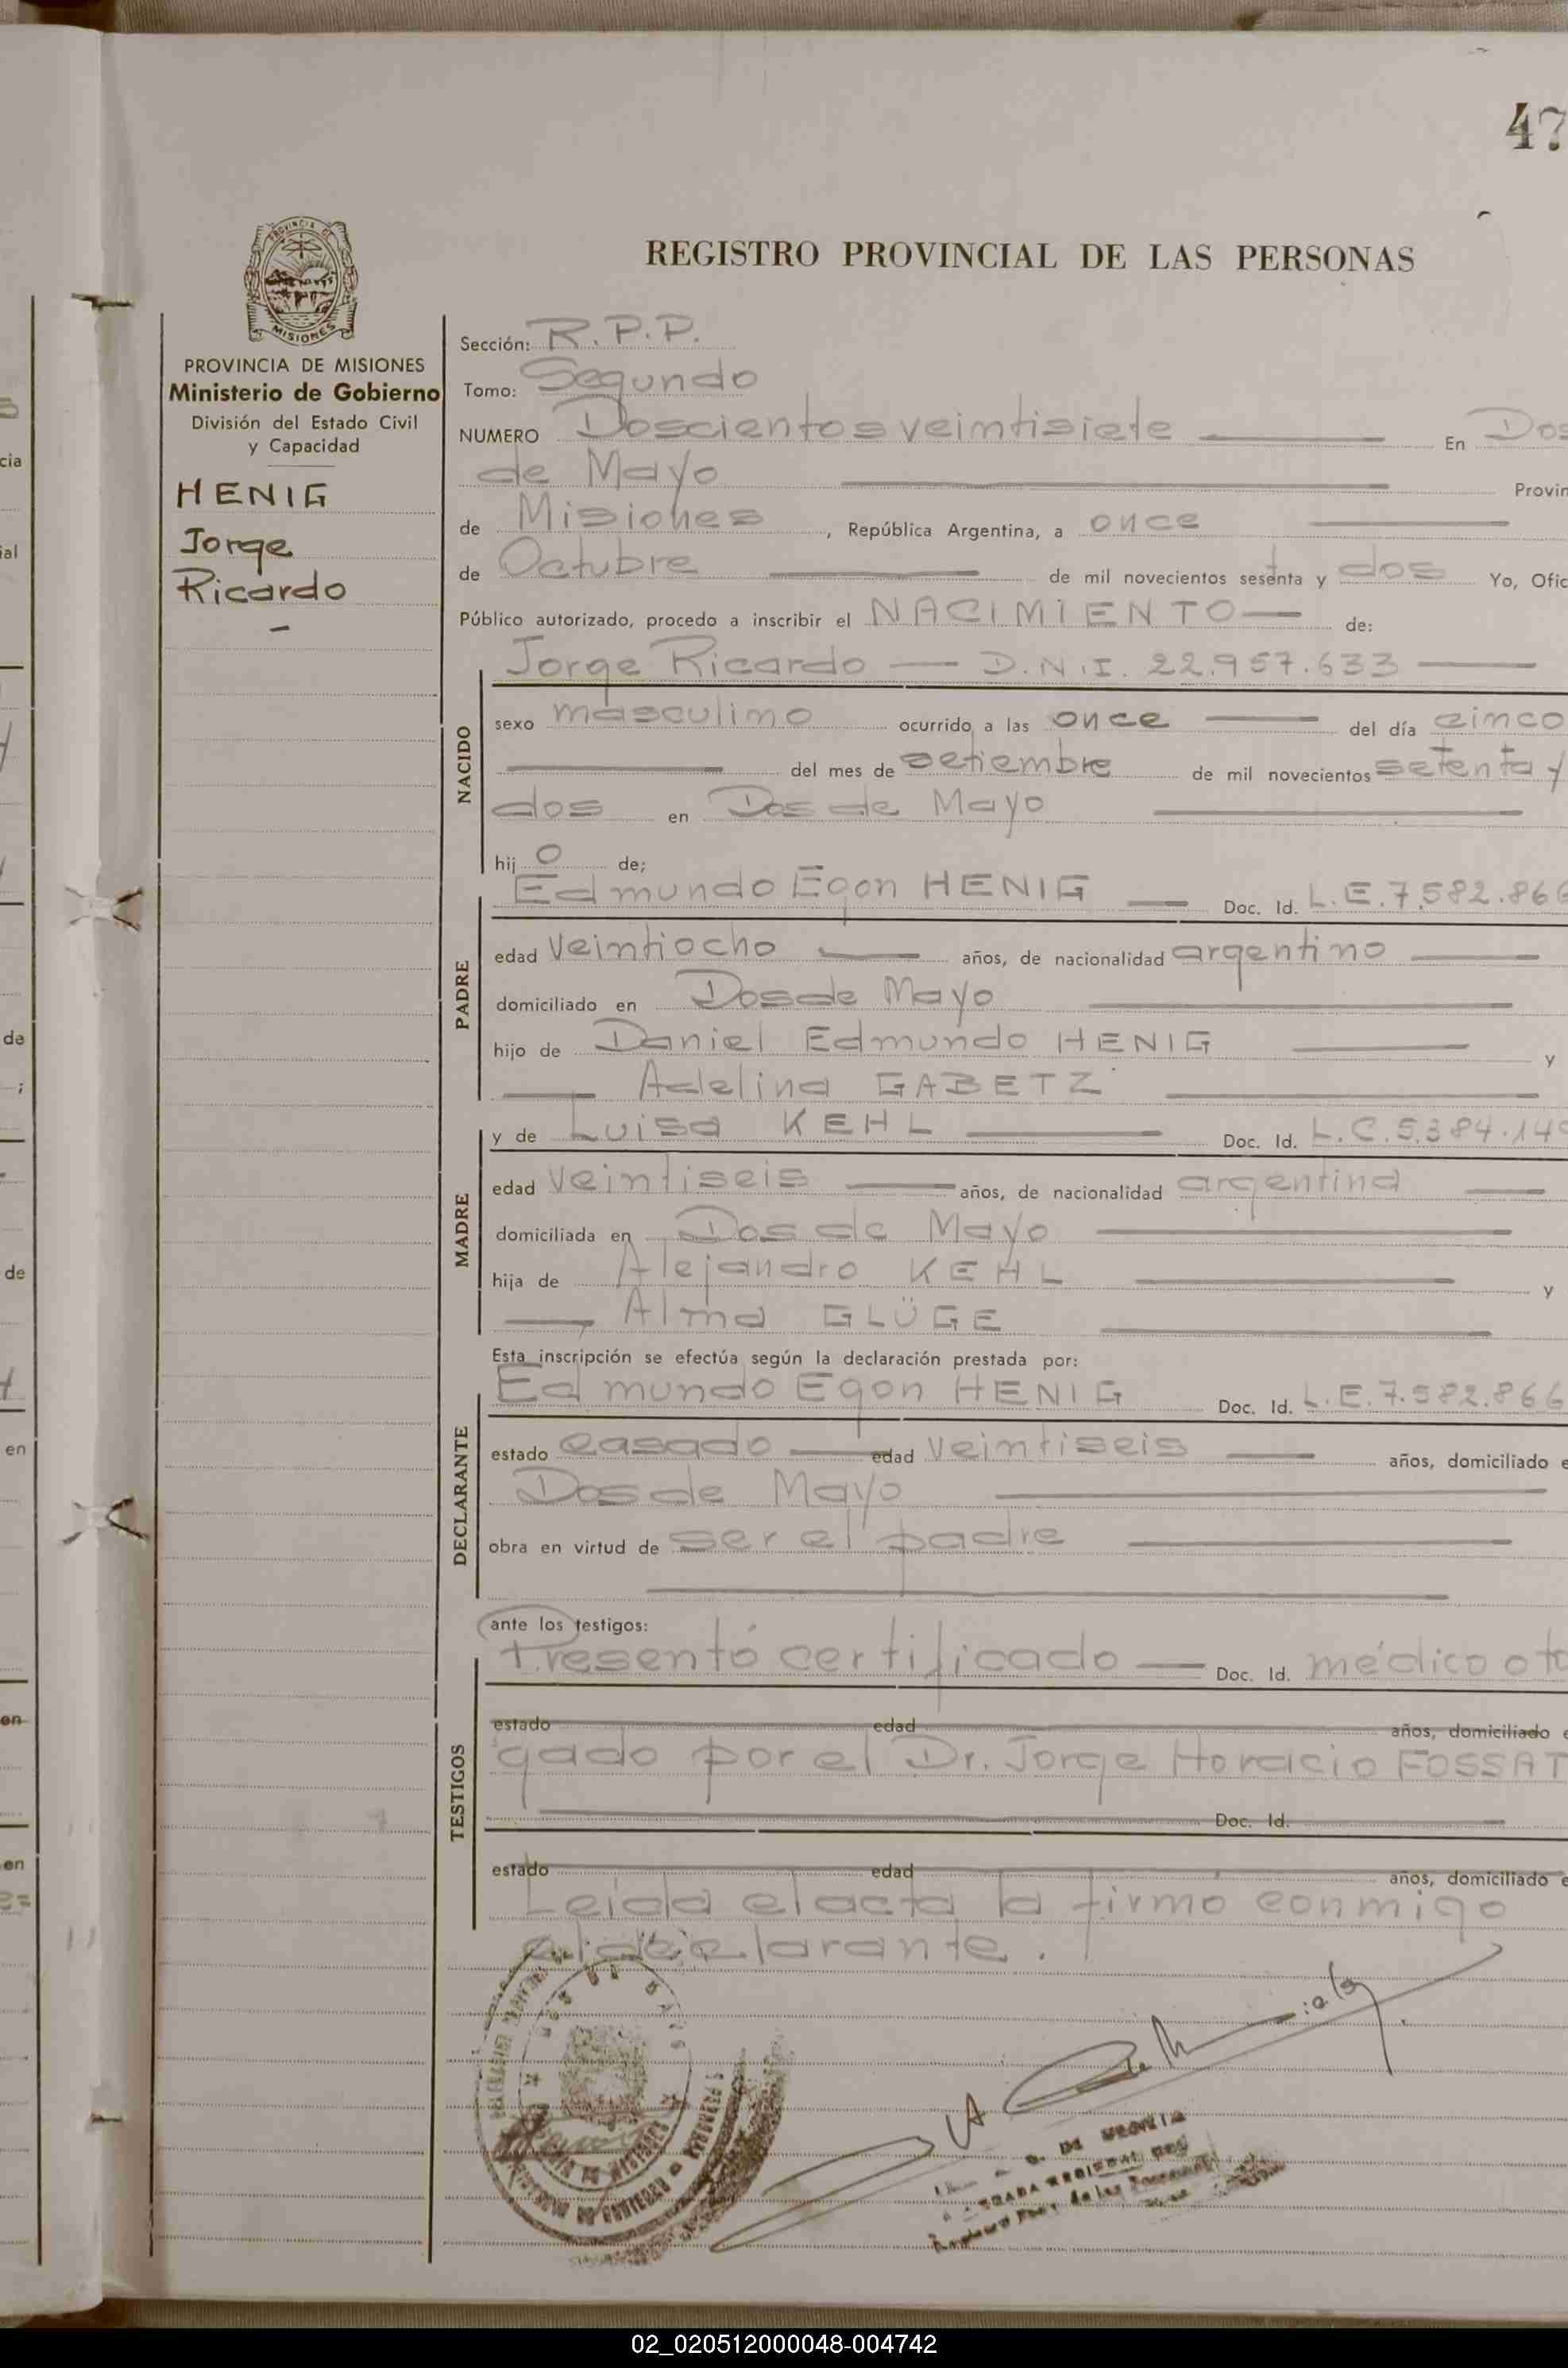 47
REGISTRO PROVINCIAL DE LAS PERSONAS
PROVINCIA DE MISIONES
Ministerio de Gobierno
División del Estado Civil
y Capacidad
HENIG
Jorge
Ricardo
Sección: R.P.P.
Tomo: Segundo
NUMERO Doscientos veintisiete En Dos
de Mayo Provin
de Misiones, República Argentina, a once
de Octubre de mil novecientos sesenta y dos Yo, Ofic
Público autorizado, procedo a inscribir el NACIMIENTO de:
NACIDO
Jorge Ricardo — D.N.I. 22.957.633
sexo masculino ocurrido a las once del día cinco
del mes de setiembre de mil novecientos setenta y
dos en Dos de Mayo
hijo de;
PADRE
Edmundo Egon HENIG Doc. Id. L.E. 7.582.866
edad veintiocho años, de nacionalidad argentino
domiciliado en Dos de Mayo
hijo de Daniel Edmundo HENIG y
Adelina GABETZ
MADRE
y de Luisa KEHL Doc. Id. L.C. 5.384.149
edad veintiseis años, de nacionalidad argentina
domiciliada en Dos de Mayo
hija de Alejandro KEHL y
Alma GLÜGE
Esta inscripción se efectúa según la declaración prestada por:
DECLARANTE
Edmundo Egon HENIG Doc. Id. L.E. 7.582.866
estado casado edad veintiseis años, domiciliado e
Dos de Mayo
obra en virtud de ser el padre
ante los testigos:
TESTIGOS
Presentó certificado — Doc. Id. médico oto
estado edad años, domiciliado e
gado por el Dr. Jorge Horacio FOSSAT
Doc. Id.
estado edad años, domiciliado e
Leida el acta la firmó conmigo
el declarante.
02_020512000048-004742